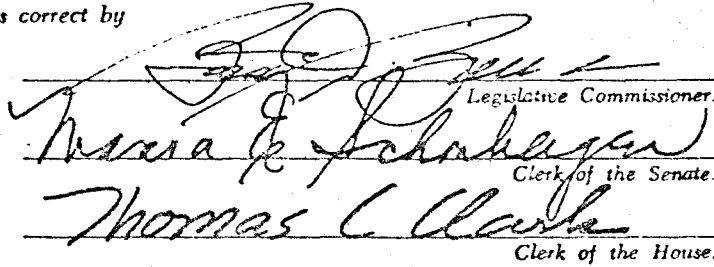 s correct by
Legislative Commissioner.
Maria E
Clerk of the Senate.
Thomas C Clark
Clerk of the House.